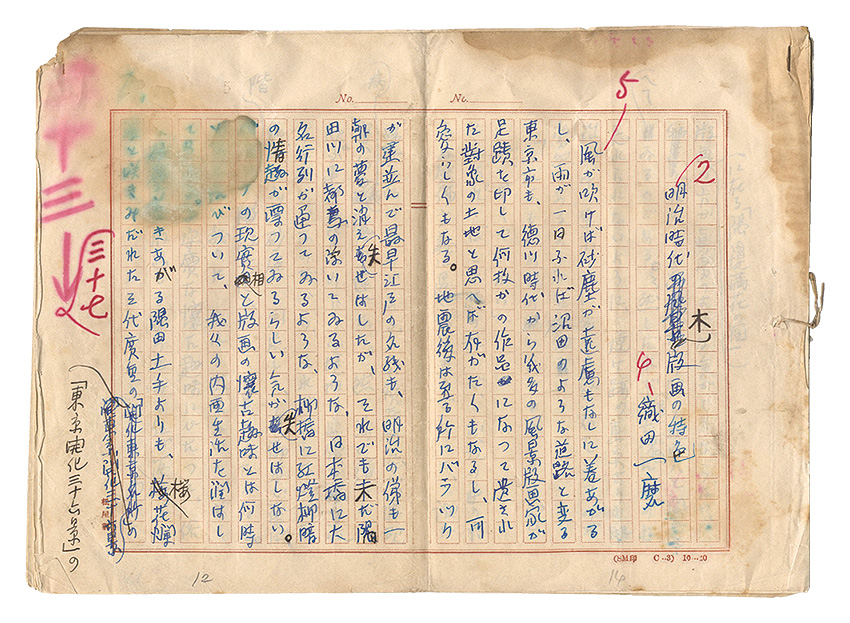 No.
No.
2
明治時代木版画の特色
4、織田一磨
5
風が吹けば砂塵が遠慮もなしに舞あがる
し、雨が一日ふれば沼田のような道路と変る
東京市も、徳川時代から幾多の風景版画家が
足蹟を印して何枚かの作品になつて遺され
た対象の土地と思へば存がたくもなるし、
愛らしくもなる。地震後は至る所にバラツク
が建並んで最早江戸の名残も、明治の俤も一
朝の夢と消え失せはしたが、それでも未だ隅
田川に都鳥の浮いてゐるような、日本橋に大
名行列が通つてゐるような、柳橋に紅燈柳暗
の情趣が漂つてゐるらしい気が失せはしない。
の現実相と版画の懐古趣味とは何時
びついて、我々の内面生活を潤はし
きあがる隅田土手よりも、桜花爛
と咲きみだれた三代廣重の
「東京開化三十六景」の
十三
三十七
(SM印 C-3) 10-20
12
14